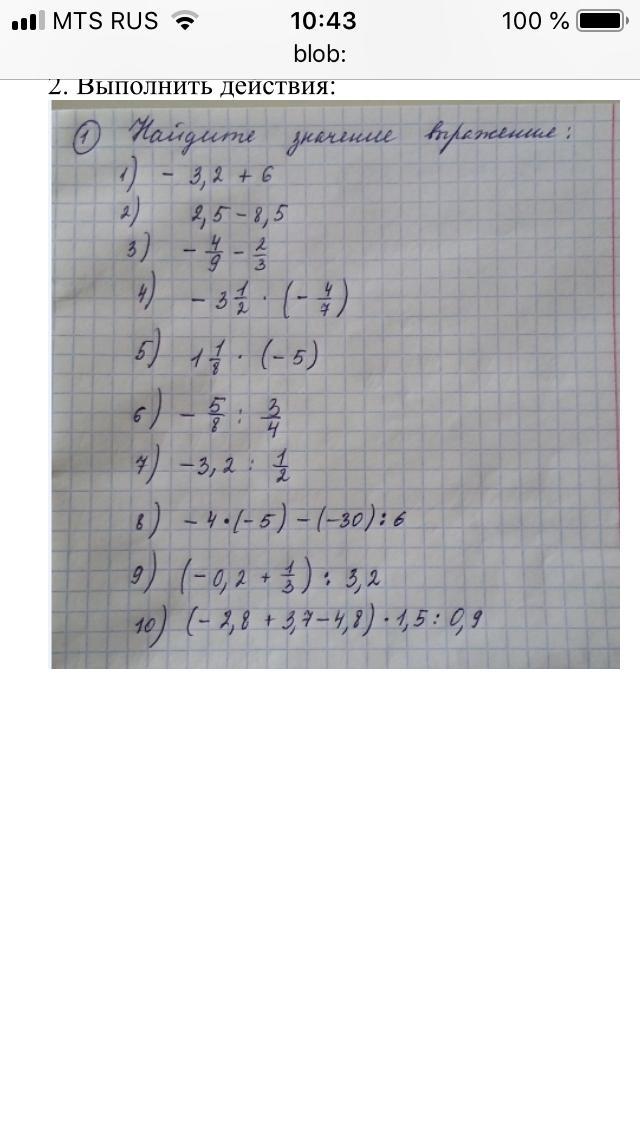 MTS RUS 10:43 100 %
blob:
2. Выполнить действия:
1 Найдите значение выражение:
1) - 3,2 + 6
2) 2,5 - 8,5
3) - 4/9 - 2/3
4) - 3 1/2 · (- 4/7)
5) 1 1/8 · (- 5)
6) - 5/8 : 3/4
7) -3,2 : 1/2
8) - 4·(-5) - (-30) : 6
9) (-0,2 + 1/3) : 3,2
10) (- 2,8 + 3,7 - 4,8) · 1,5 : 0,9